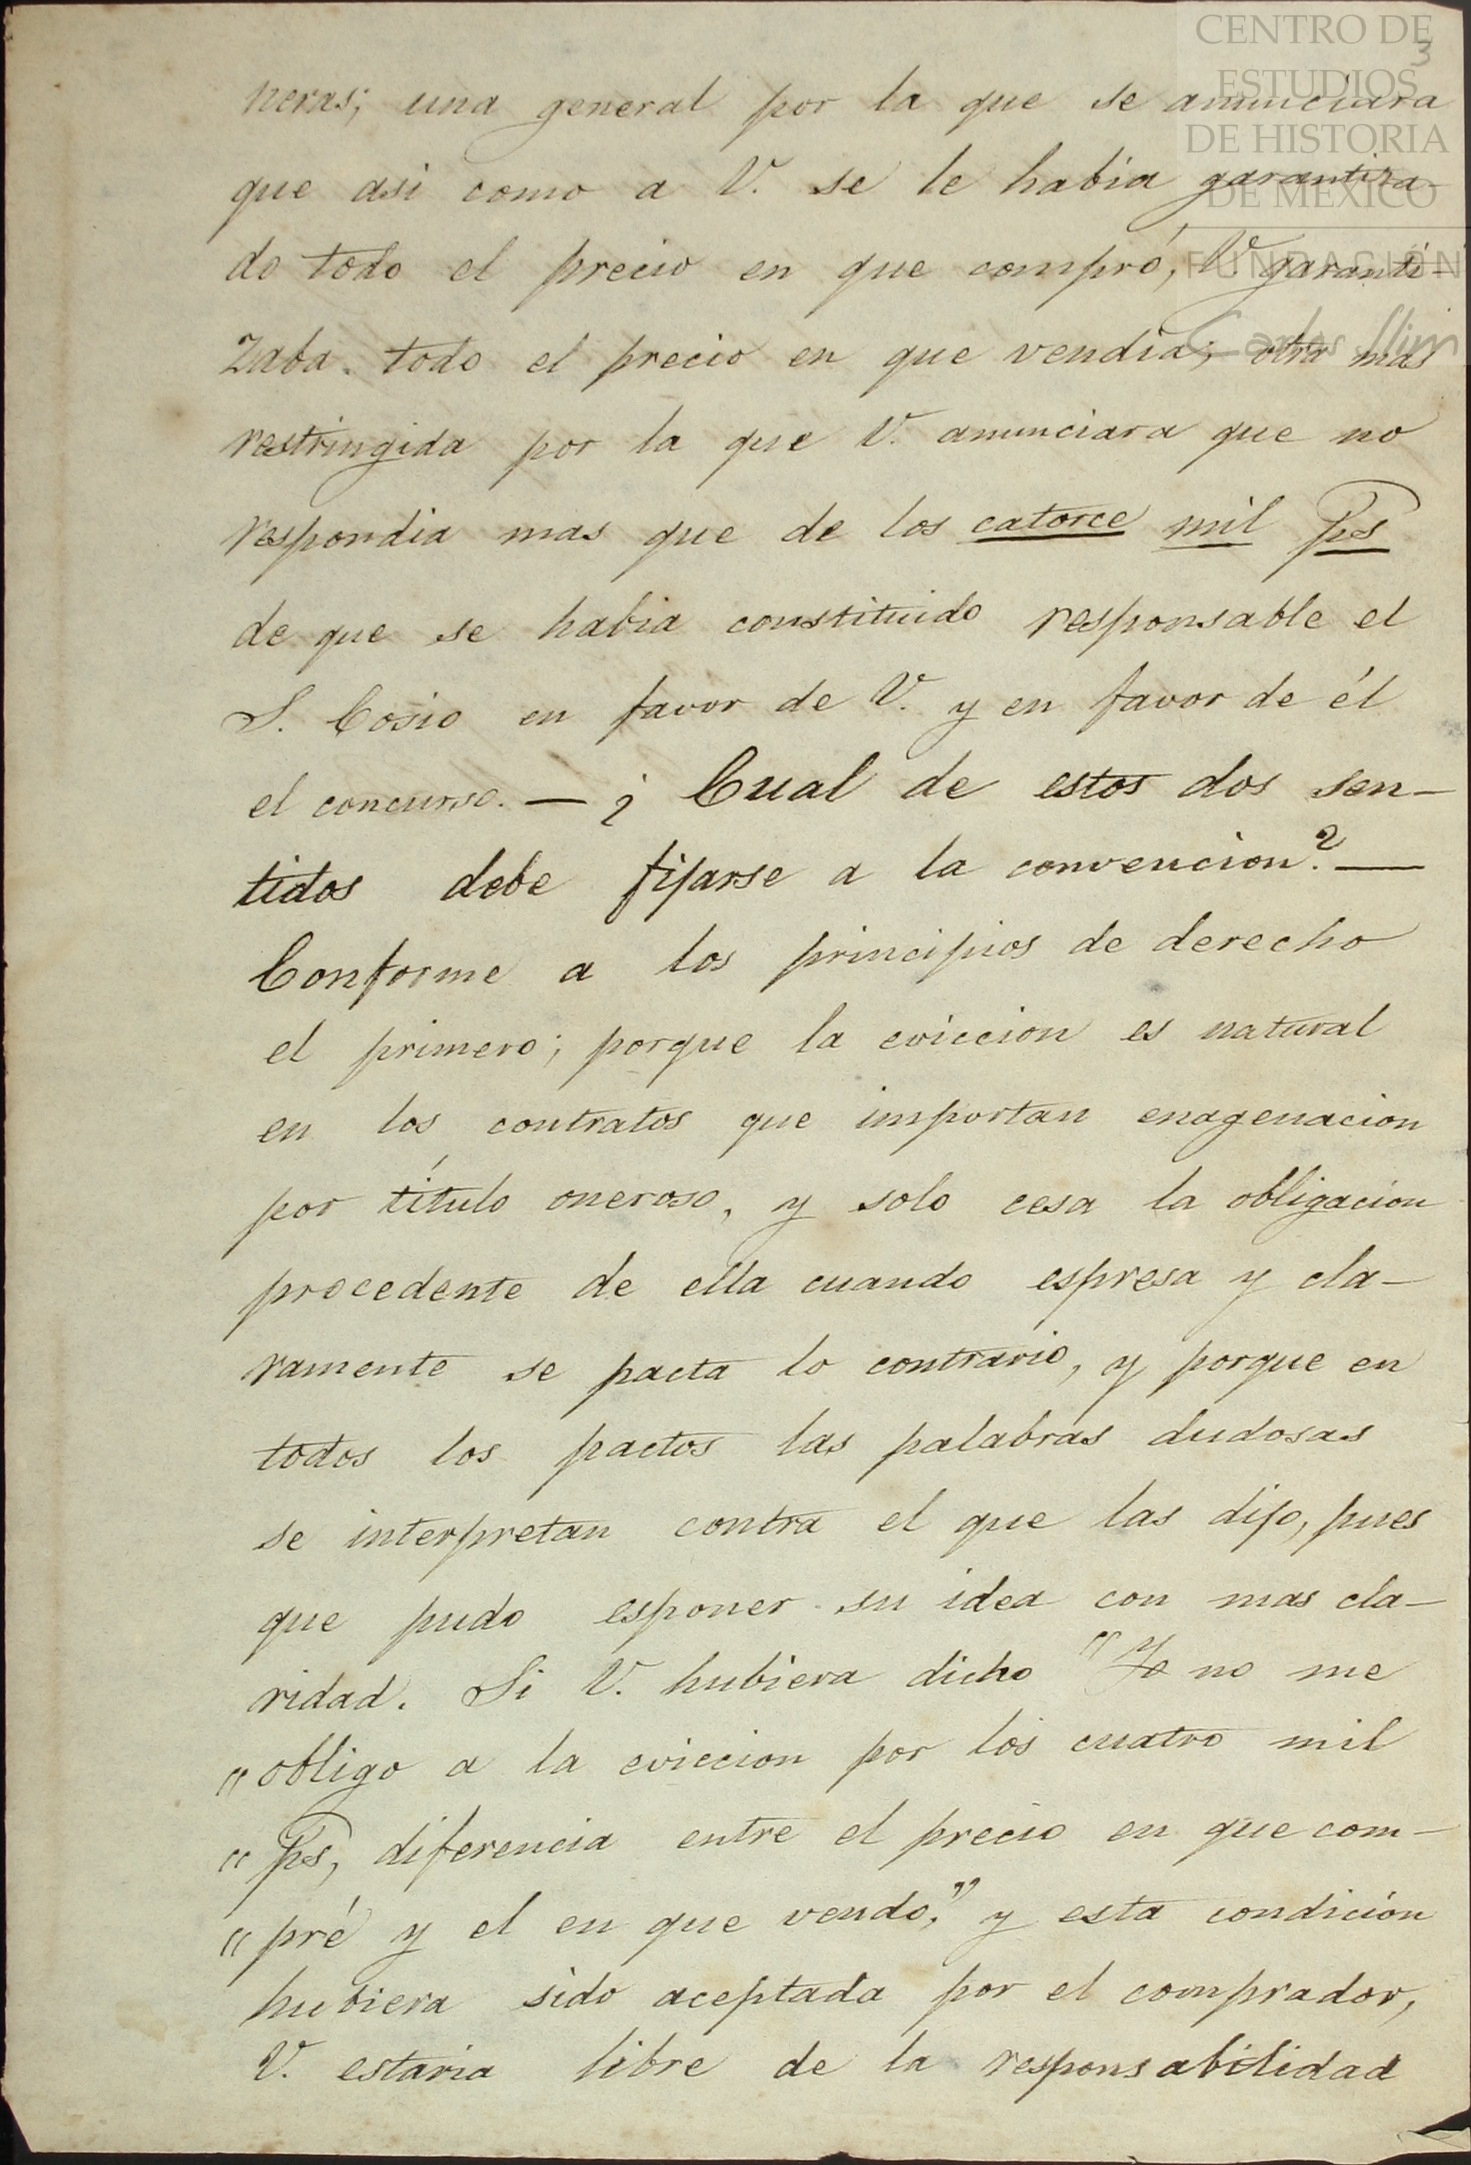 CENTRO DE
ESTUDIOS
DE HISTORIA
DE MÉXICO
FUNDACIÓN
Carlos Slim
3
neras; una general por la que se anunciara
que asi como a V. se le habia garantiza-
do todo el precio en que compró, V. garanti-
zaba todo el precio en que vendia; otra mas
restringida por la que V. anunciara que no
respondia mas que de los catorce mil ps
de que se habia constituido responsable el
S. Cosio en favor de V. y en favor de él
el concurso. — ¿Cual de estos dos sen-
tidos debe fijarse a la convencion? —
Conforme a los principios de derecho
el primero; porque la eviccion es natural
en los contratos que importan enagenacion
por título oneroso, y solo cesa la obligacion
procedente de ella cuando espresa y cla-
ramente se pacta lo contrario, y porque en
todos los pactos las palabras dudosas
se interpretan contra el que las dijo, pues
que pudo esponer su idea con mas cla-
ridad. Si V. hubiera dicho "Yo no me
"obligo a la eviccion por los cuatro mil
"ps, diferencia entre el precio en que com-
"pré y el en que vendo," y esta condición
hubiera sido aceptada por el comprador,
V. estaria libre de la responsabilidad